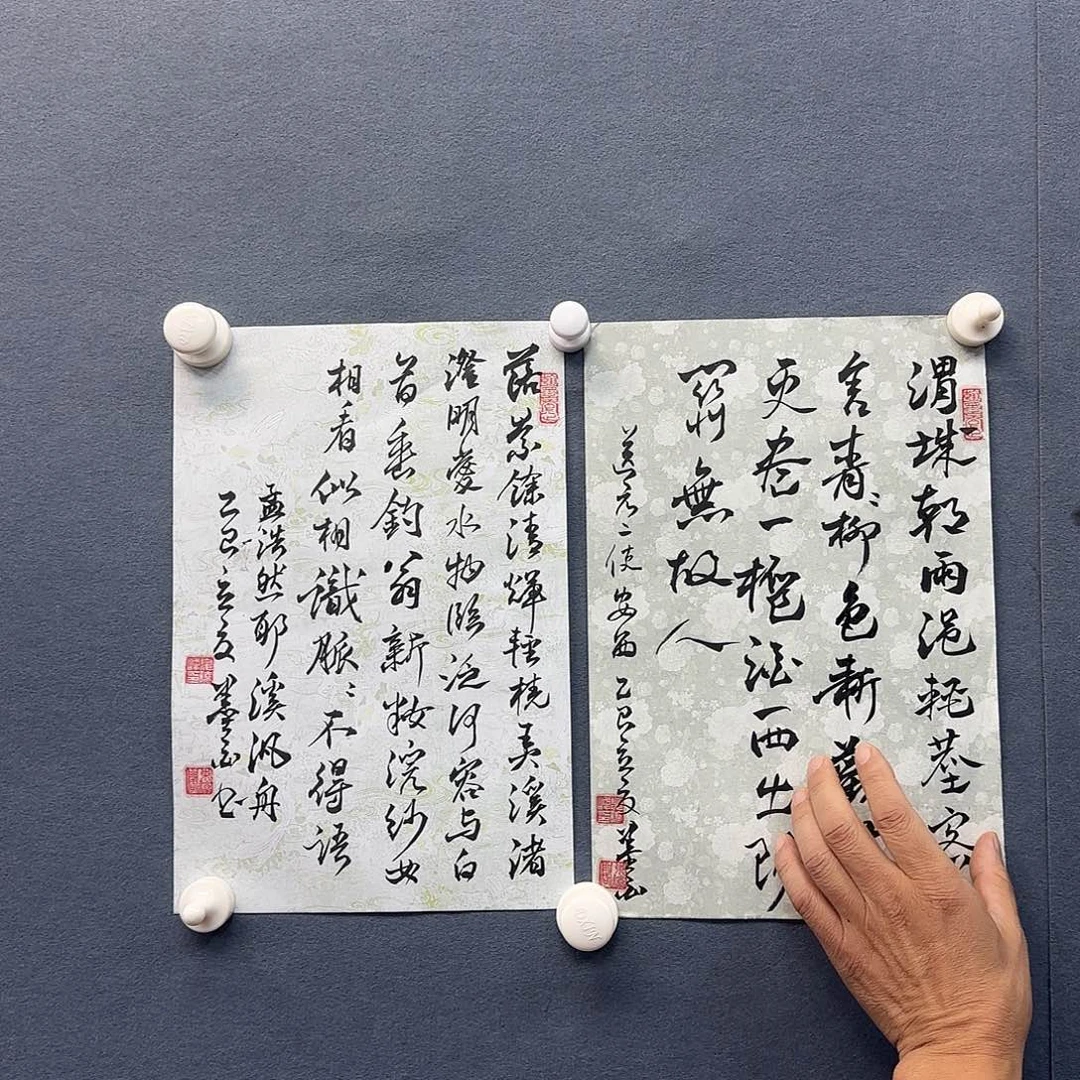 渭城朝雨浥輕塵客
舍青〻柳色新勸
更尽一杯酒西出阳
關無故人
送元二使安西 乙巳立夏
落景餘清輝輕橈弄溪渚
澄明愛水物臨泛何容与白
首垂釣翁新妝浣紗女
相看似相識脈〻不得語
孟浩然耶溪汎舟
乙巳立夏 墨 书